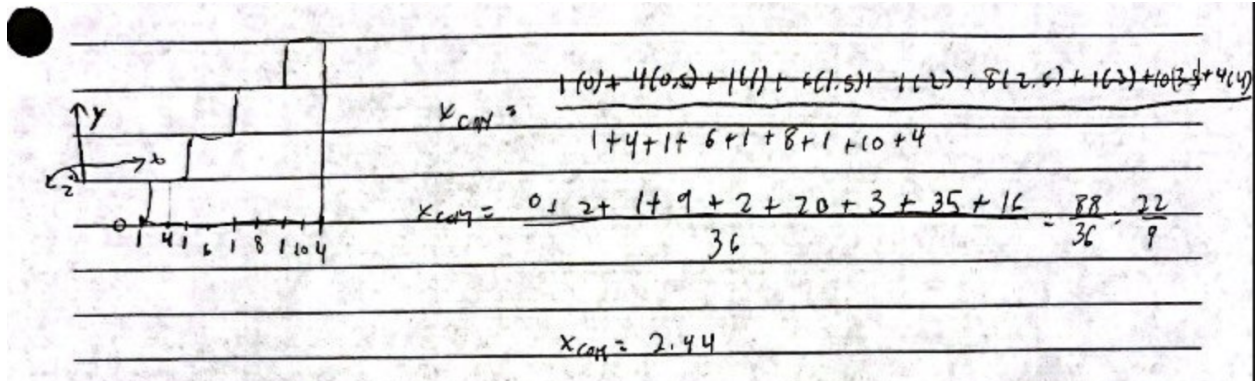 y
x
z
0
1 4 1 6 1 8 1 10 4
x_COM = 1(0) + 4(0.5) + 1(1) + 6(1.5) + 1(2) + 8(2.5) + 1(3) + 10(3.5) + 4(4)
1+4+1+ 6+1+8+1+10+4
x_COM = 0+ 2+ 1+ 9 + 2 + 20 + 3 + 35 + 16 = 88 = 22
36 36 9
x_COM = 2.44